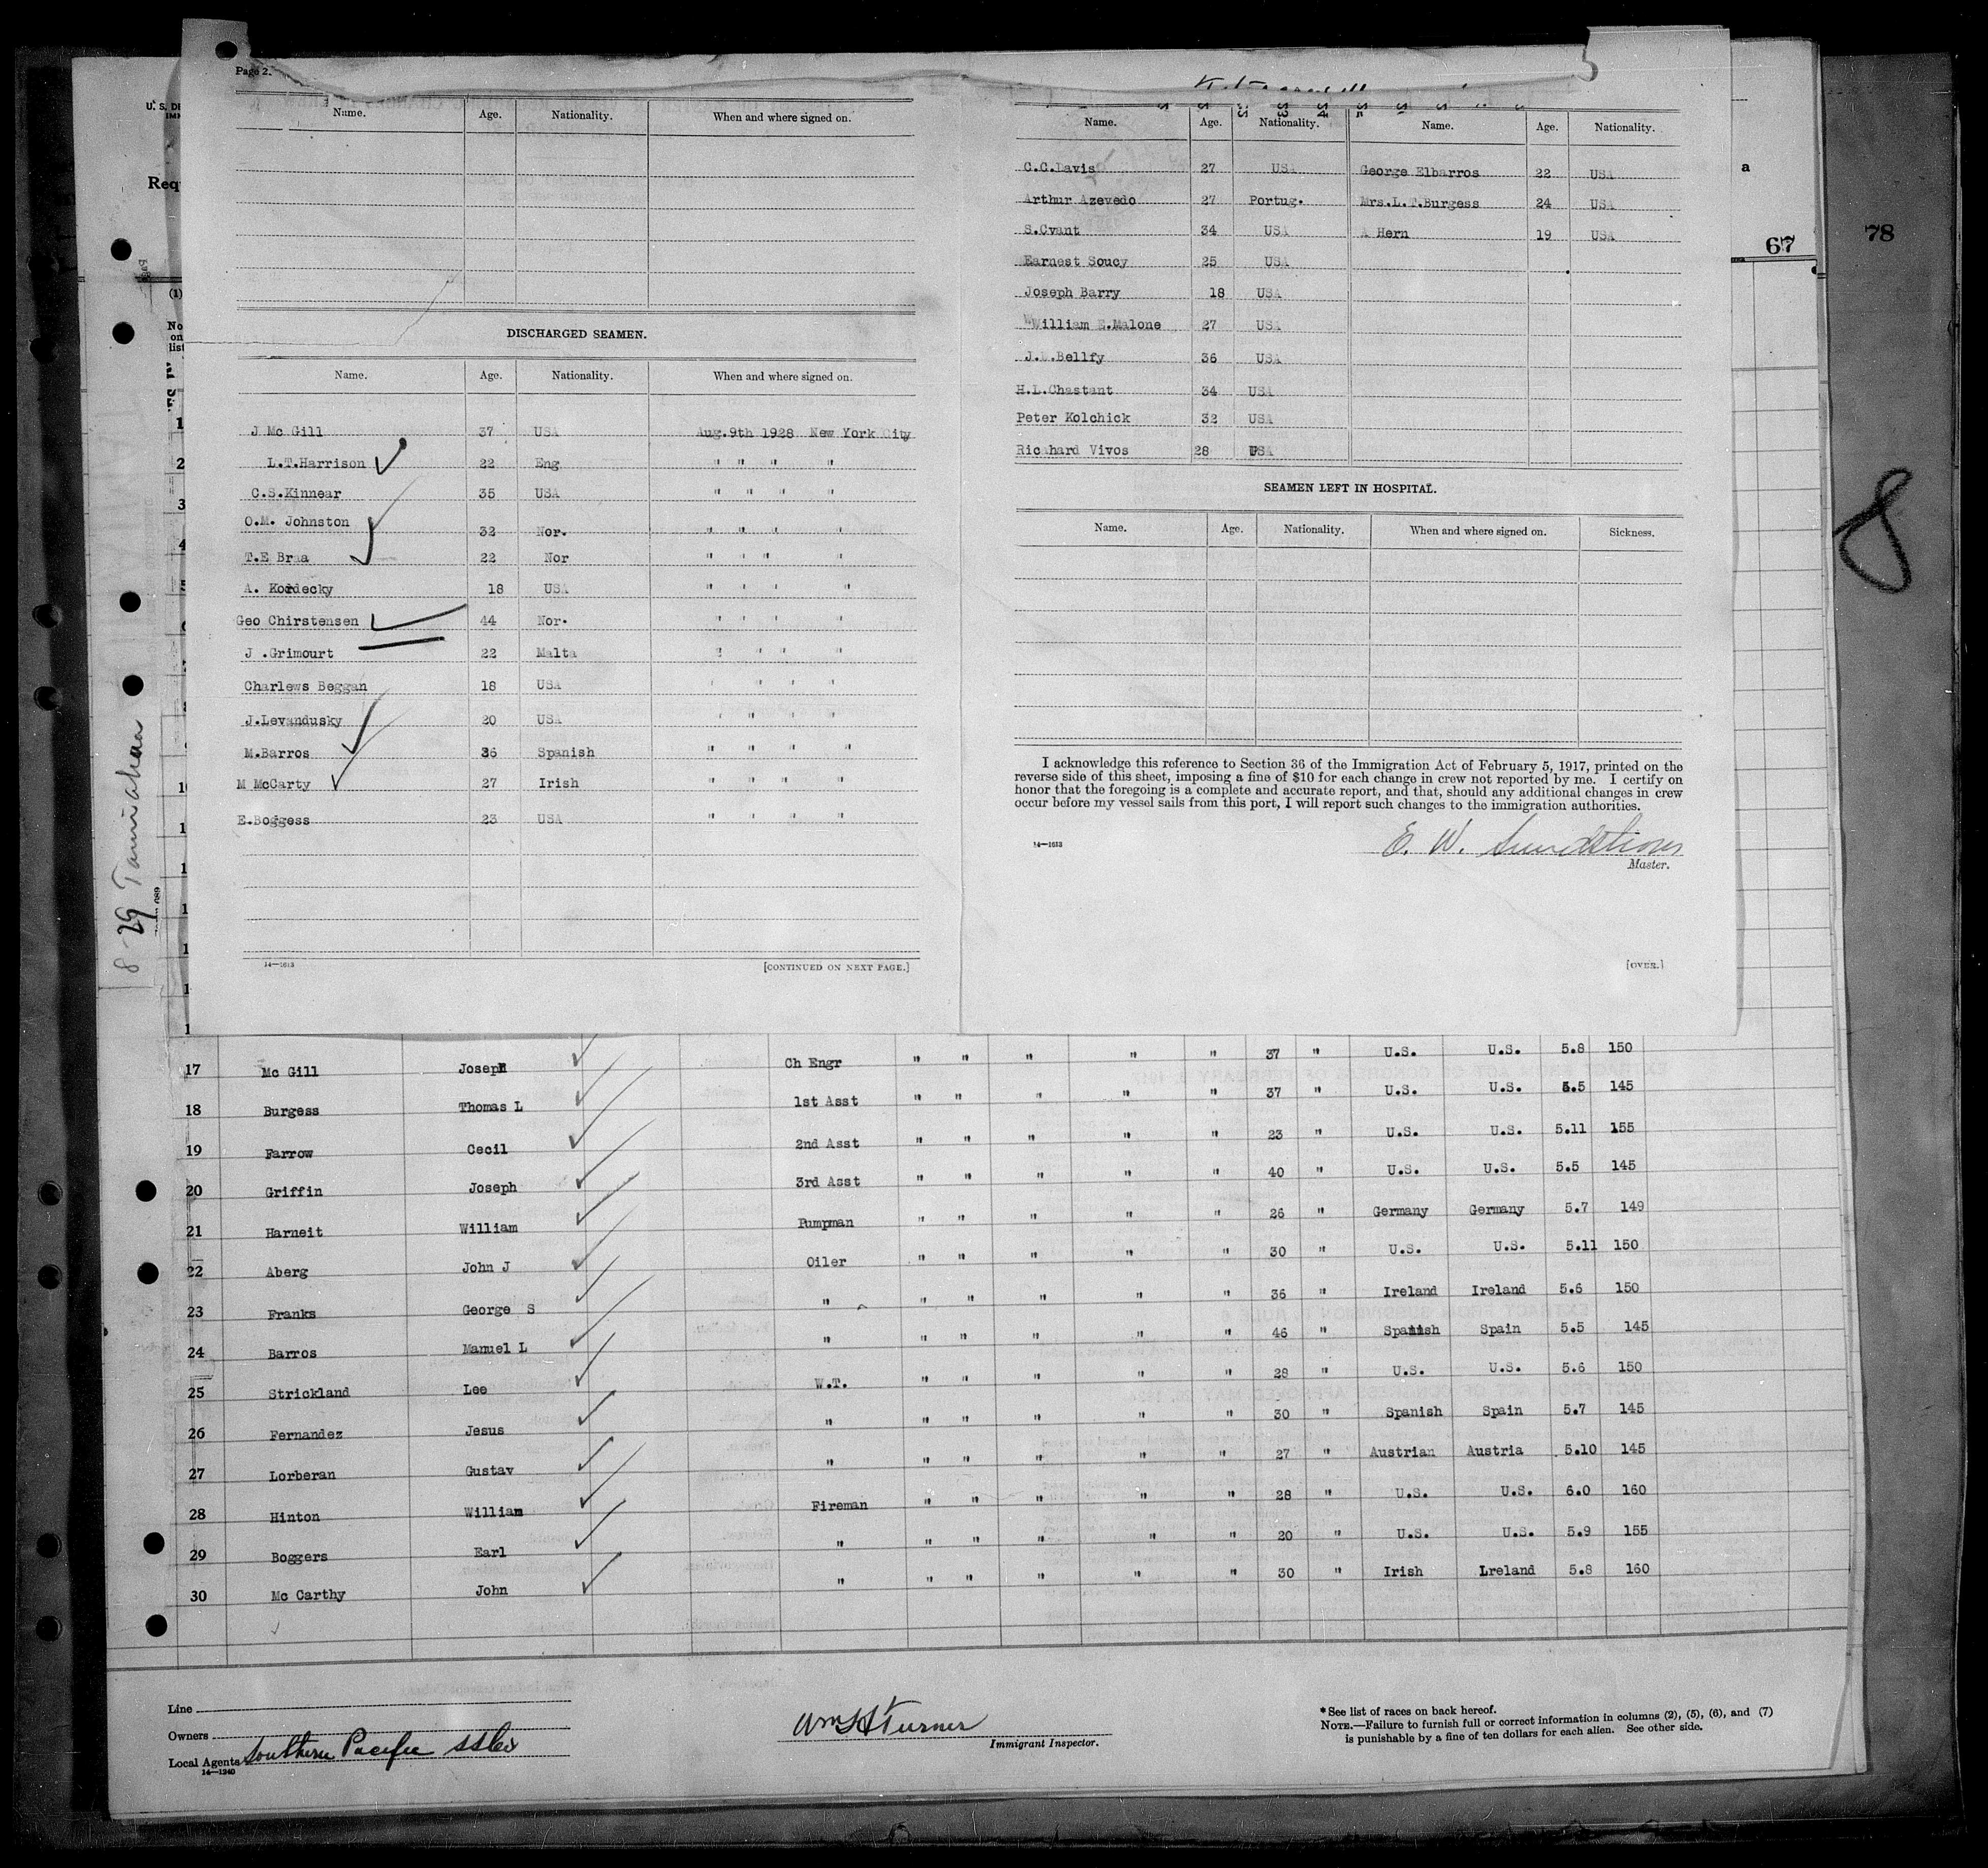 Page 2.
Name. Age. Nationality. When and where signed on.
DISCHARGED SEAMEN.
Name. Age. Nationality. When and where signed on.
J Mc Gill 37 USA Aug.9th 1928 New York City
L.T.Harrison 22 Eng " " " "
C.S.Kinnear 35 USA " " " "
O.M. Johnston 32 Nor. " " " "
T.E Braa 22 Nor " " " "
A. Kordecky 18 USA " " " "
Geo Chirstensen 44 Nor. " " " "
J .Grimourt 22 Malta " " " "
Charlews Beggan 18 USA " " " "
J.Levandusky 20 USA " " " "
M.Barros 36 Spanish " " " "
M McCarty 27 Irish " " " "
E.Boggess 23 USA " " " "
14—1613 [CONTINUED ON NEXT PAGE.]
Name. Age. Nationality. Name. Age. Nationality.
C.C.Davis 27 USA George Elbarros 22 USA
Arthur Azevedo 27 Portug. Mrs.L.T.Burgess 24 USA
S.Cvant 34 USA A Hern 19 USA
Earnest Soucy 25 USA
Joseph Barry 18 USA
William E.Malone 27 USA
J. .Bellfy 36 USA
H.L.Chastant 34 USA
Peter Kolchick 32 USA
Ricahard Vivos 28 USA
SEAMEN LEFT IN HOSPITAL.
Name. Age. Nationality. When and where signed on. Sickness.
I acknowledge this reference to Section 36 of the Immigration Act of February 5, 1917, printed on the
reverse side of this sheet, imposing a fine of $10 for each change in crew not reported by me. I certify on
honor that the foregoing is a complete and accurate report, and that, should any additional changes in crew
occur before my vessel sails from this port, I will report such changes to the immigration authorities.
E. W.
14—1613 Master.
[OVER.]
U. S. DE
Requ
(1)
No
on
list
1
2
3
4
5
a
67
78
8
8 29 Tamiahua
17 Mc Gill Joseph Ch Engr " " " " " 37 " U.S. U.S. 5.8 150
18 Burgess Thomas L 1st Asst " " " " " 37 " U.S. U.S. 5.5 145
19 Farrow Cecil 2nd Asst " " " " " 23 " U.S. U.S. 5.11 155
20 Griffin Joseph 3rd Asst " " " " " 40 " U.S. U.S. 5.5 145
21 Harneit William Pumpman " " " " " 26 " Germany Germany 5.7 149
22 Aberg John J Oiler " " " " " 30 " U.S. U.S. 5.11 150
23 Franks George S " " " " " " 36 " Ireland Ireland 5.6 150
24 Barros Manuel L " " " " " " 46 " Spanish Spain 5.5 145
25 Strickland Lee W.T. " " " " " 28 " U.S. U.S. 5.6 150
26 Fernandez Jesus " " " " " " 30 " Spanish Spain 5.7 145
27 Lorberan Gustav " " " " " " 27 " Austrian Austria 5.10 145
28 Hinton William Fireman " " " " " 28 " U.S. U.S. 6.0 160
29 Boggers Earl " " " " " " 20 " U.S. U.S. 5.9 155
30 Mc Carthy John " " " " " " 30 " Irish Lreland 5.8 160
Line
Owners
Local Agents Southern Pacific SS Co
14—1240
Wm H Turner
Immigrant Inspector.
* See list of races on back hereof.
NOTE.—Failure to furnish full or correct information in columns (2), (5), (6), and (7)
is punishable by a fine of ten dollars for each alien. See other side.